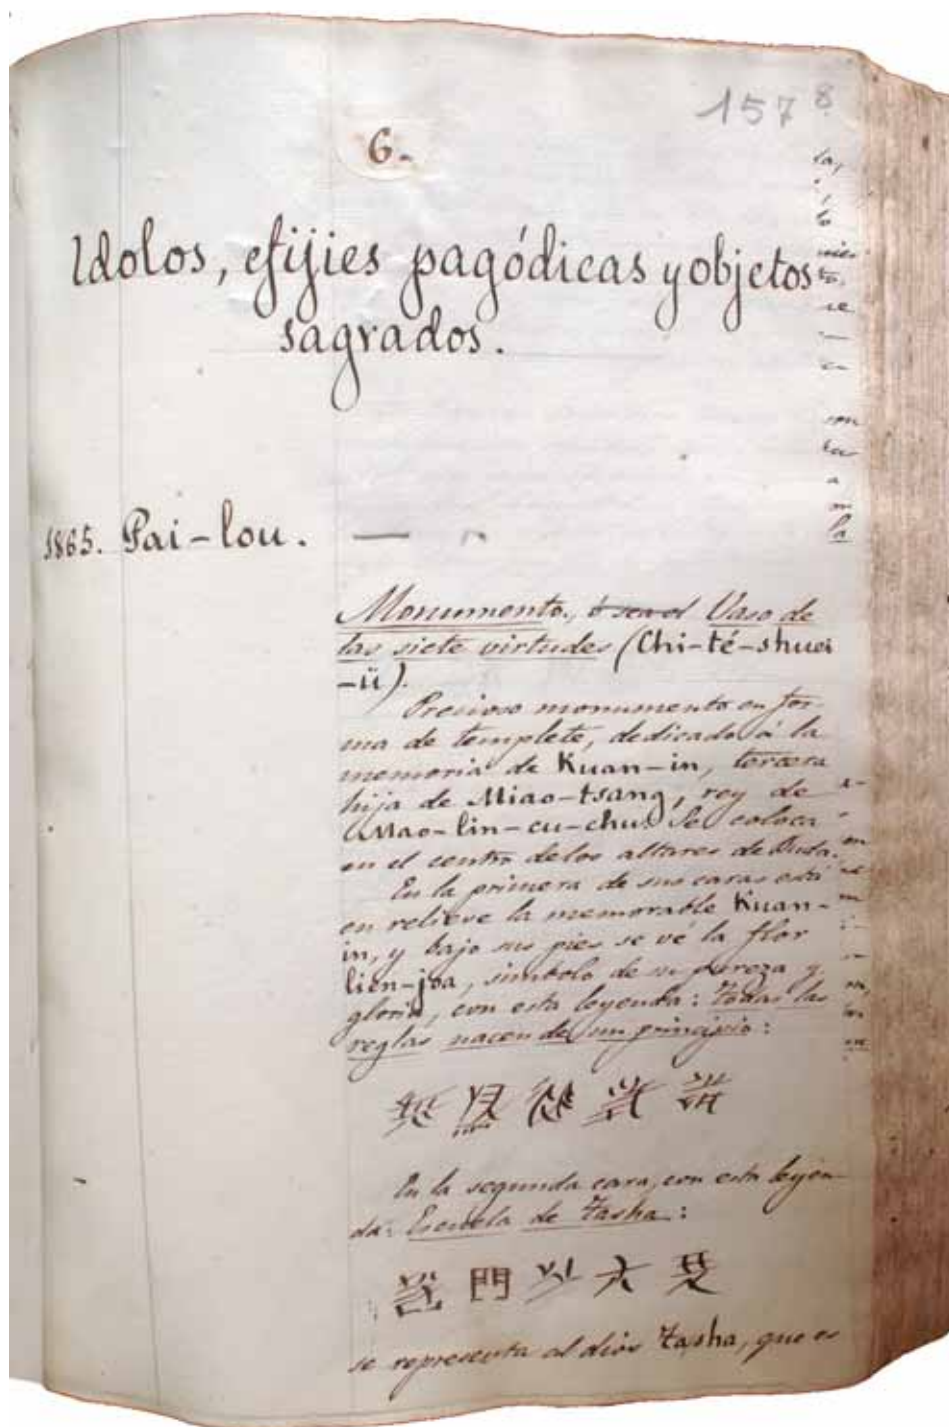 157 8
6.
Idolos, efijies pagódicas y objetos
sagrados.
1865. Pai-lou. —
Monumento, ó sea el Vaso de
las siete virtudes (Chi-té-shuei
-ü).
Precioso monumento en for-
ma de templete, dedicado á la
memoria de Kuan-in, tercera
hija de Miao-tsang, rey de
(Mao-lin-cu-chu). Se coloca
en el centro de los altares de Buda.
En la primera de sus caras está
en relieve la memorable Kuan-
in, y bajo sus pies se vé la flor
lien-joa, simbolo de su pureza y
gloria, con esta leyenda: todas las
reglas nacen de un principio:
En la segunda cara, con esta leyen-
da: Escuela de Tasha:
門 大
se representa al dios Tasha, que es